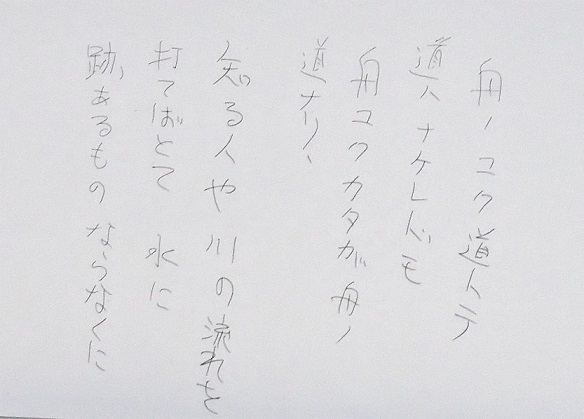 舟ノコク道トテ
道ハナケレドモ
舟コクカタガ舟ノ
道ナリ、
知る人や川の流れを
打てばとて 水に
跡あるもの ならなくに